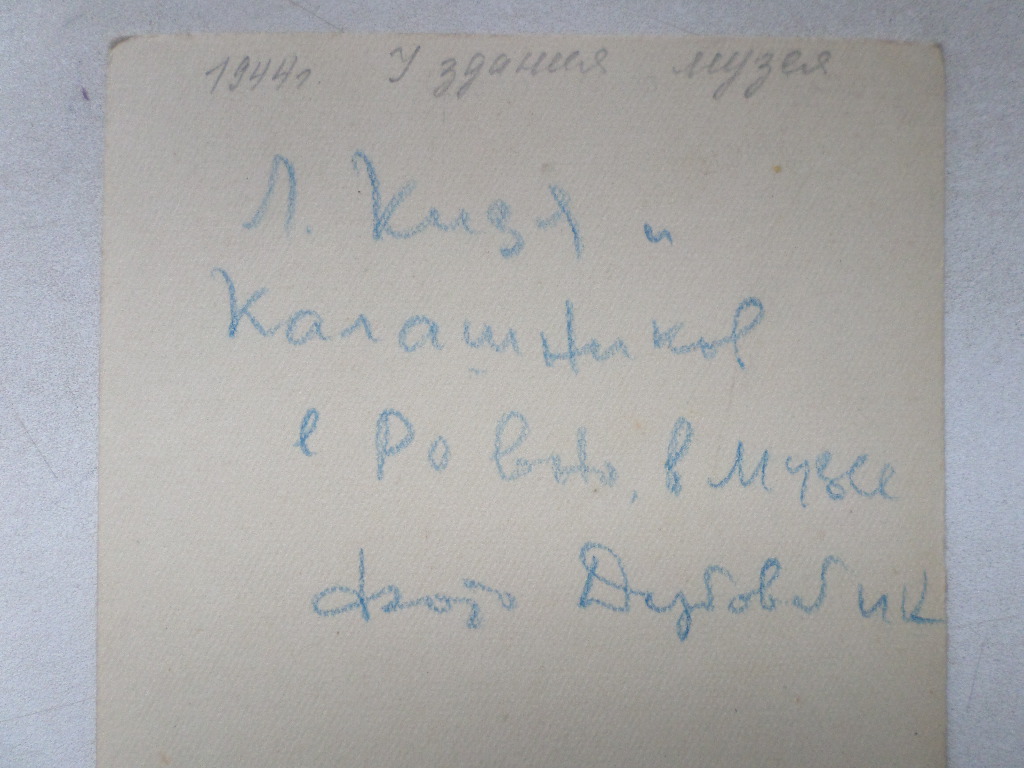 1944г. У здания музея
Л. Кизя и
Калашников
в Ровно, в музее
фото